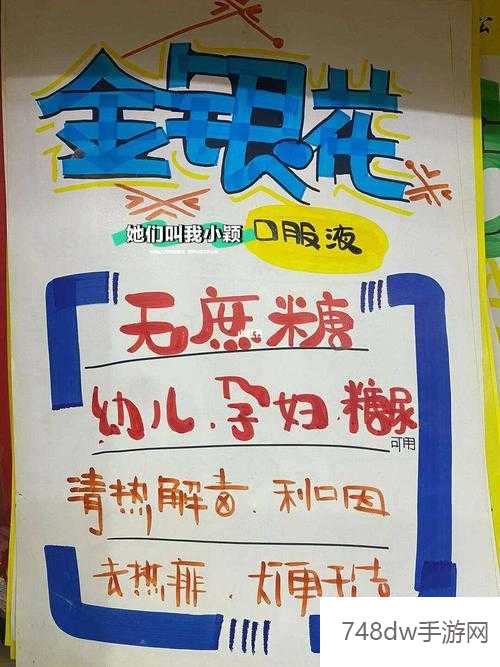 金银花
她们叫我小颖 口服液
无蔗糖
幼儿.孕妇.糖尿
可用
清热解毒.利口因
去热痱.大便干结
748dw手游网